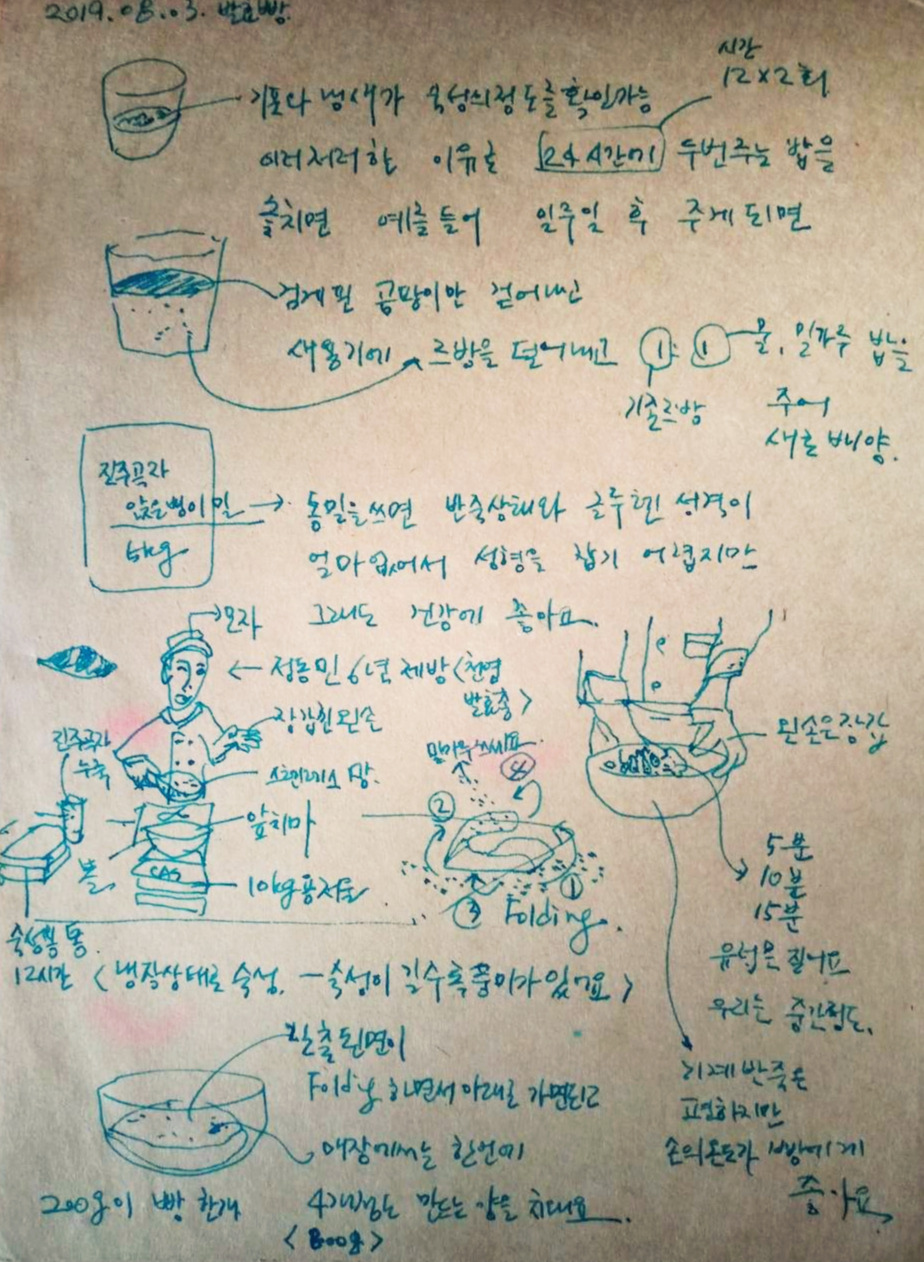 2019.08.03. 발효빵
시간
12×2회
기포와 냄새가 숙성의 정도를 확인가능
이러저러한 이유로 24시간에 두번주는 밥을
놓치면 예를들어 일주일 후 주게되면
검게핀 곰팡이만 걷어내고
새용기에 르방을 덜어내고 1: 1 물, 밀가루 밥을
기존르방 주어
새로 배양.
진주곡자
앉은뱅이 밀
5kg
통밀을쓰면 반죽상태와 글루텐 성격이
얼마없어서 성형을 잡기 어렵지만
그래도 건강에 좋아요.
모자
정동민 6년 제빵 <천연
발효종>
장갑낀왼손
진주곡자
누룩
스텐레스 망
앞치마
볼
CAS
10kg용저울
밀가루
④
②
①
③ Folding.
왼손은장갑
5분
10분
15분
유럽은 질어요
우리는 중간정도.
숙성통
12시간 <냉장상태로 숙성. – 숙성이 길수록풍미가있어요>
기계반죽은
편하지만
손의온도가 빵에게
좋아요
Folding 하면서 아래로 가면되고
매장에서는 한번에
200g이 빵 한개 4개정도 만드는 양을 치대요.
<800g>